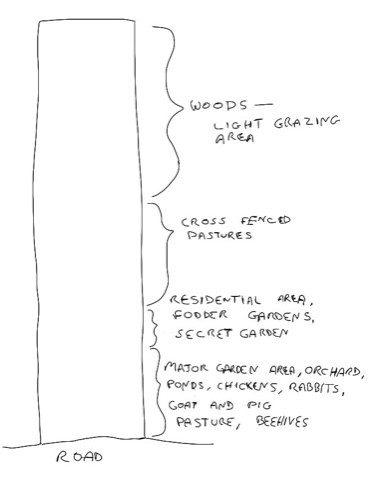 WOODS —
LIGHT GRAZING
AREA
CROSS FENCED
PASTURES
RESIDENTIAL AREA,
FODDER GARDENS,
SECRET GARDEN
MAJOR GARDEN AREA, ORCHARD,
PONDS, CHICKENS, RABBITS,
GOAT AND PIG
PASTURE, BEEHIVES
ROAD